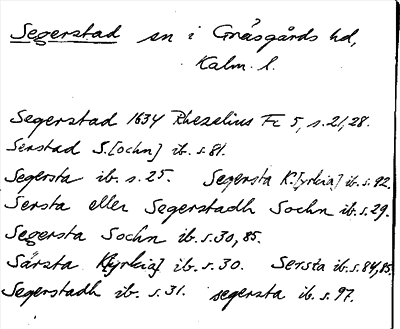 Segerstad sn i Gräsgårds hd,
Kalm. l.
Segerstad 1634 Rhezelius Fc 5, s. 21, 28.
Serstad S.[ochn] ib. s. 81.
Segersta ib. s. 25. Segersta K.[yrkia] ib. s. 92.
Sersta eller Segerstadh Sochn ib. s. 29.
Segersta Sochn ib. s. 30, 85.
Särsta K[yrkia] ib. s. 30. Sersta ib. s. 84, 85.
Segerstadh ib. s. 31. segersta ib. s. 97.